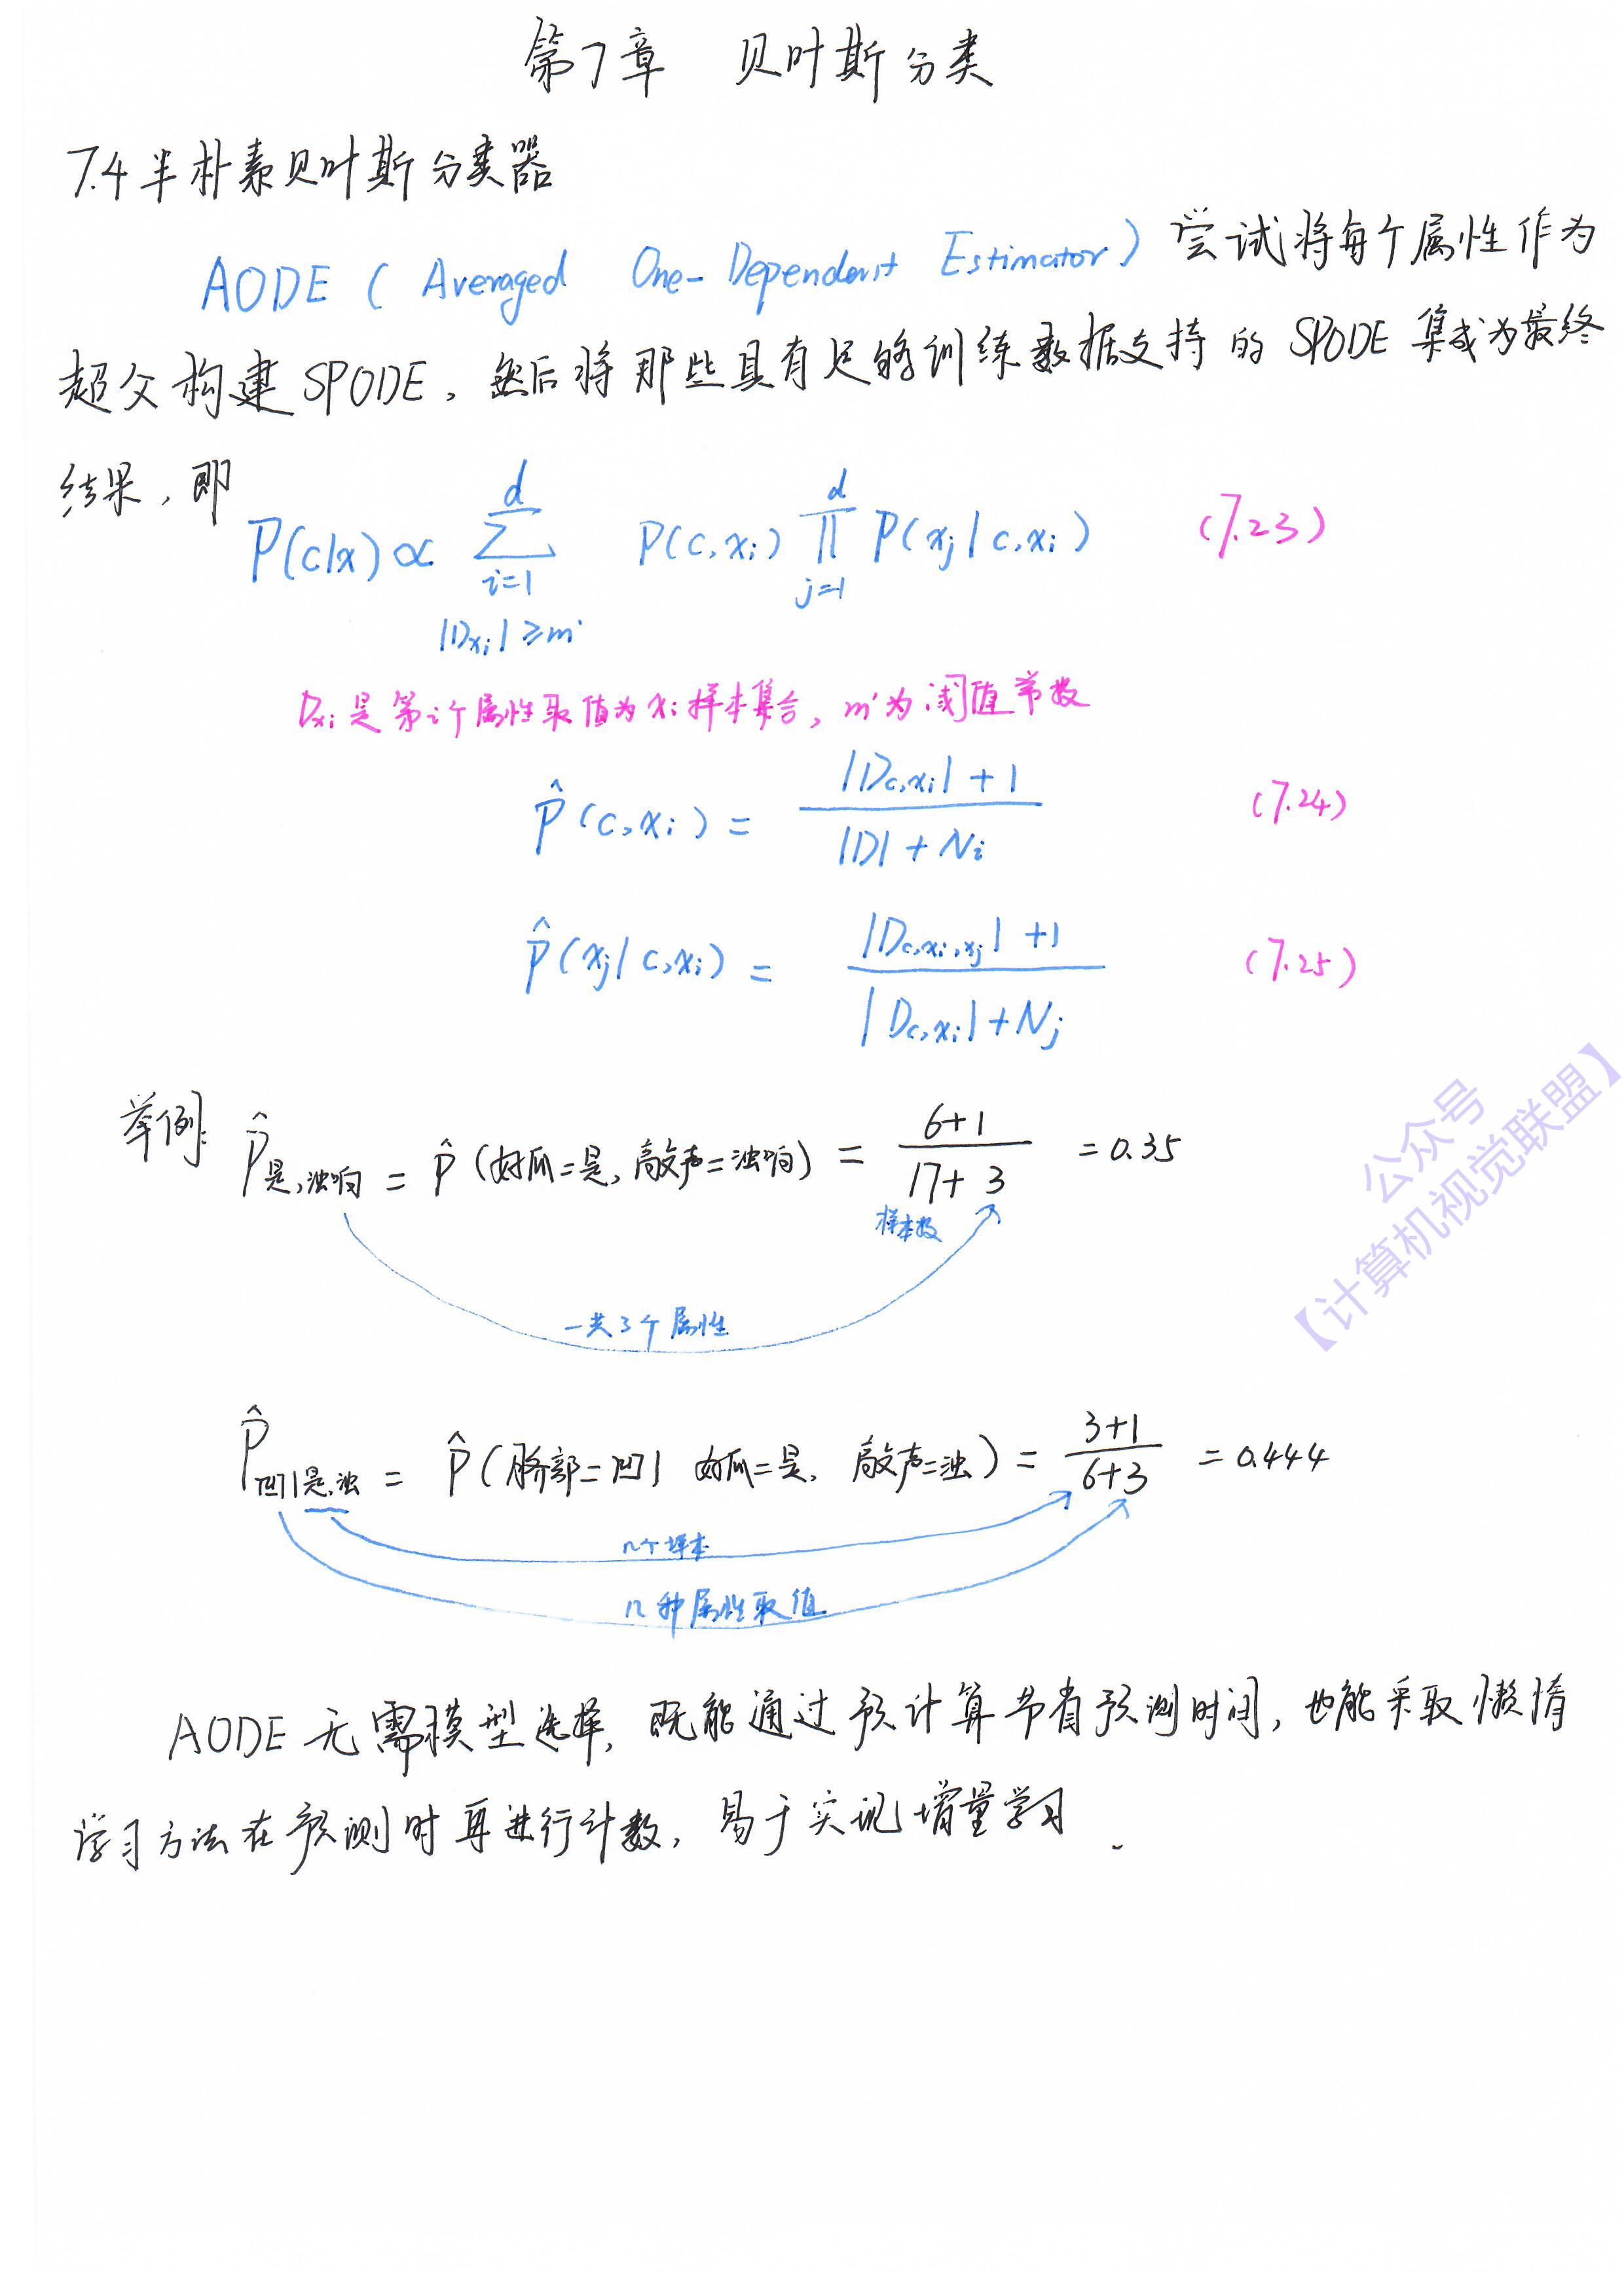 第7章 贝叶斯分类
7.4 半朴素贝叶斯分类器
AODE ( Averaged One-Dependent Estimator ) 尝试将每个属性作为
超父构建 SPODE, 然后将那些具有足够训练数据支持的 SPODE 集成为最终
结果, 即
P(c|x) ∝ ∑_{i=1, |D_{xi}| ≥ m'}^{d} P(c,x_i) ∏_{j=1}^{d} P(x_j | c,x_i) (7.23)
D_{xi} 是第i个属性取值为x_i样本集合, m'为阈值常数
P̂(c,x_i) = (|D_{c,xi}| + 1) / (|D| + N_i) (7.24)
P̂(x_j | c,x_i) = (|D_{c,xi,xj}| + 1) / (|D_{c,xi}| + N_j) (7.25)
举例: P̂_{是,浊响} = P̂(好瓜=是, 敲声=浊响) = (6+1) / (17+3) = 0.35
样本数
一共3个属性
P̂_{凹|是,浊} = P̂(脐部=凹 | 好瓜=是, 敲声=浊) = (3+1) / (6+3) = 0.444
几个样本
几种属性取值
AODE 无需模型选择, 既能通过预计算节省预测时间, 也能采取懒惰
学习方法在预测时再进行计数, 易于实现增量学习.
公众号
【计算机视觉联盟】